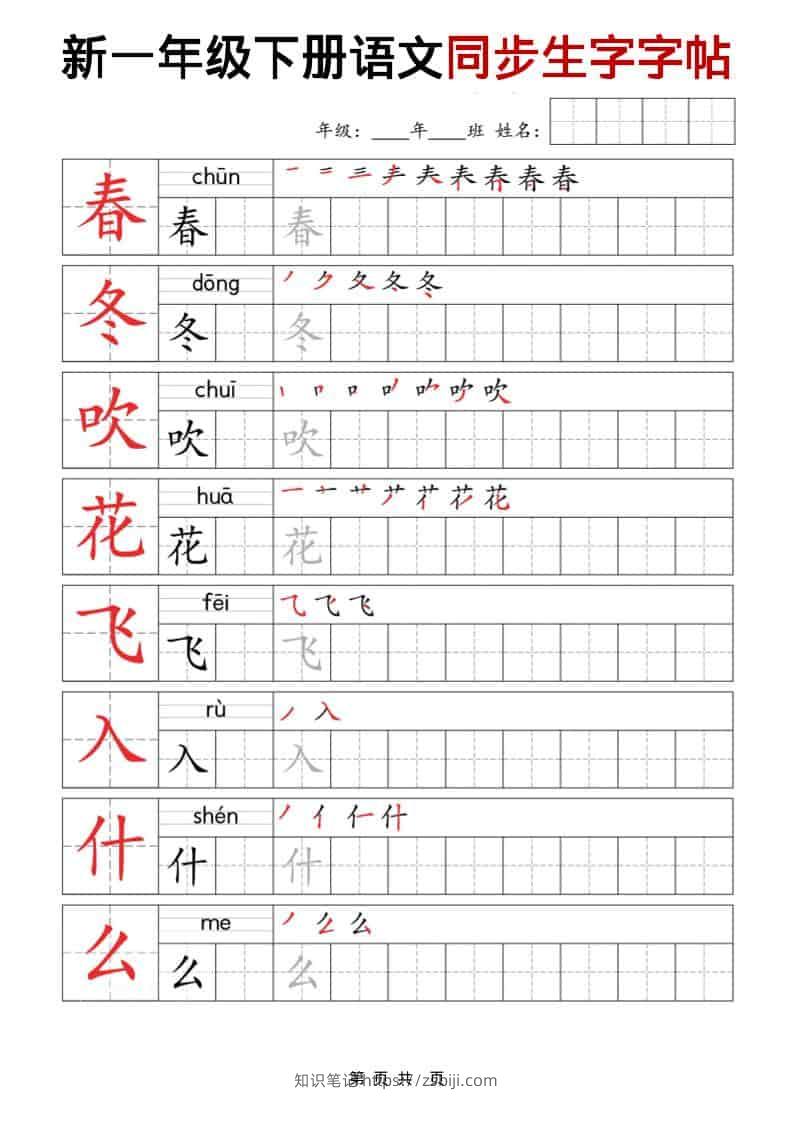 新一年级下册语文同步生字字帖
年级：____年____班 姓名：
春 chūn 一 二 三 𡗗 春 春 春
春 春
冬 dōng 丿 ク 夂 冬 冬
冬 冬
吹 chuī 丨 口 吹
吹 吹
花 huā 一 十 艹 花
花 花
飞 fēi 乁 飞 飞
飞 飞
入 rù 丿 入
入 入
什 shén 丿 亻 什
什 什
么 me 丿 么 么
么 么
第 页 共 页
知识笔记 https://zsbiji.com